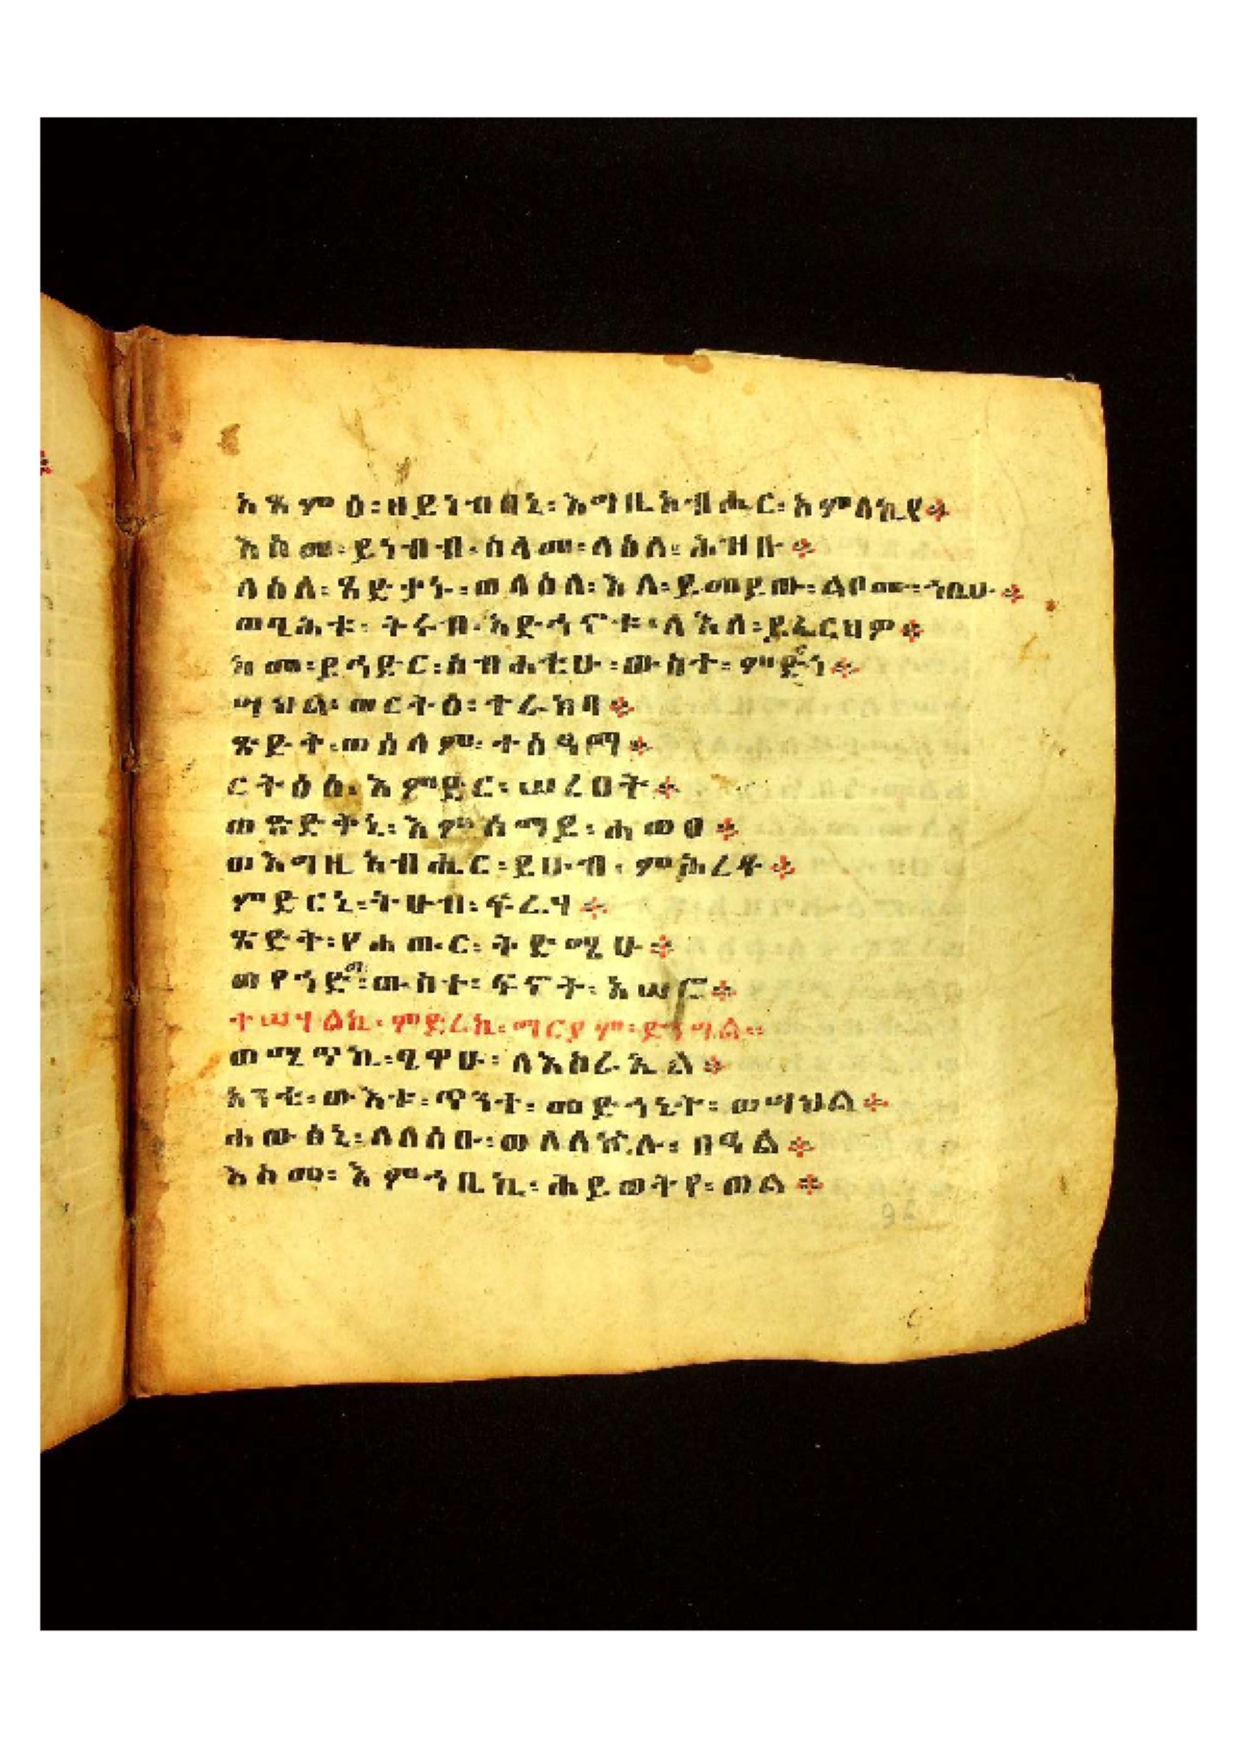 አጸምዕ፡ዘይነብበኒ፡እግዚአብሔር፡አምላኪየ።
እስመ፡ይነብብ፡ሰላመ፡ላዕለ፡ሕዝቡ።
ላዕለ፡ጻድታኑ፡ወላዕለ፡እለ፡ይመይጡ፡ልቦሙ፡ኀቤሁ።
ወባሕቱ፡ትሩብ፡አድኅኖቱ፡ለእለ፡ይፈርህዎ።
ከመ፡ይኅድር፡ስብሐቲሁ፡ውስተ፡ምድርነ።
ሣህል፡ወርትዕ፡ተራክባ።
ጽድት፡ወሰላም፡ተስዓማ።
ርትዕሰ፡እምድር፡ሠረፀት።
ወጽድትኒ፡እምሰማይ፡ሐወፀ።
ወእግዚአብሔር፡ይሁብ፡ምሕረቶ።
ምድርኒ፡ትሁብ፡ፍሬሃ።
ጽድት፡የሐውር፡ትድሜሁ።
ወየኀድግ፡ውስተ፡ፍኖት፡አሠሮ።
ተሠሃልኪ፡ምድረኪ፡ማርያም፡ድንግል።
ወሜጥኪ፡ፄዋሁ፡ለእስራኤል።
አንቲ፡ውእቱ፡ጥንተ፡መድኀኒት፡ወሣህል።
ሐውፅኒ፡ለለሰዐቱ፡ወለለኵሉ፡በዓል።
እስመ፡እምኀቤኪ፡ሕይወትየ፡ጠል።